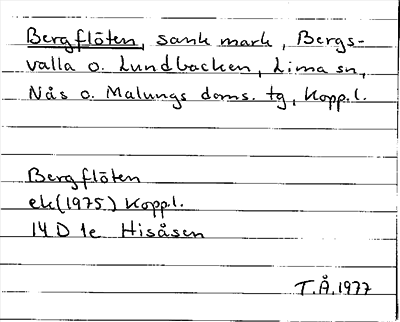 Bergflöten, sank mark, Bergs-
valla o. Lundbacken, Lima sn,
Nås o. Malungs doms. tg, Kopp.l.
Bergflöten
ek(1975) Kopp.l.
14 D 1e Hisåsen
T.Å.1977